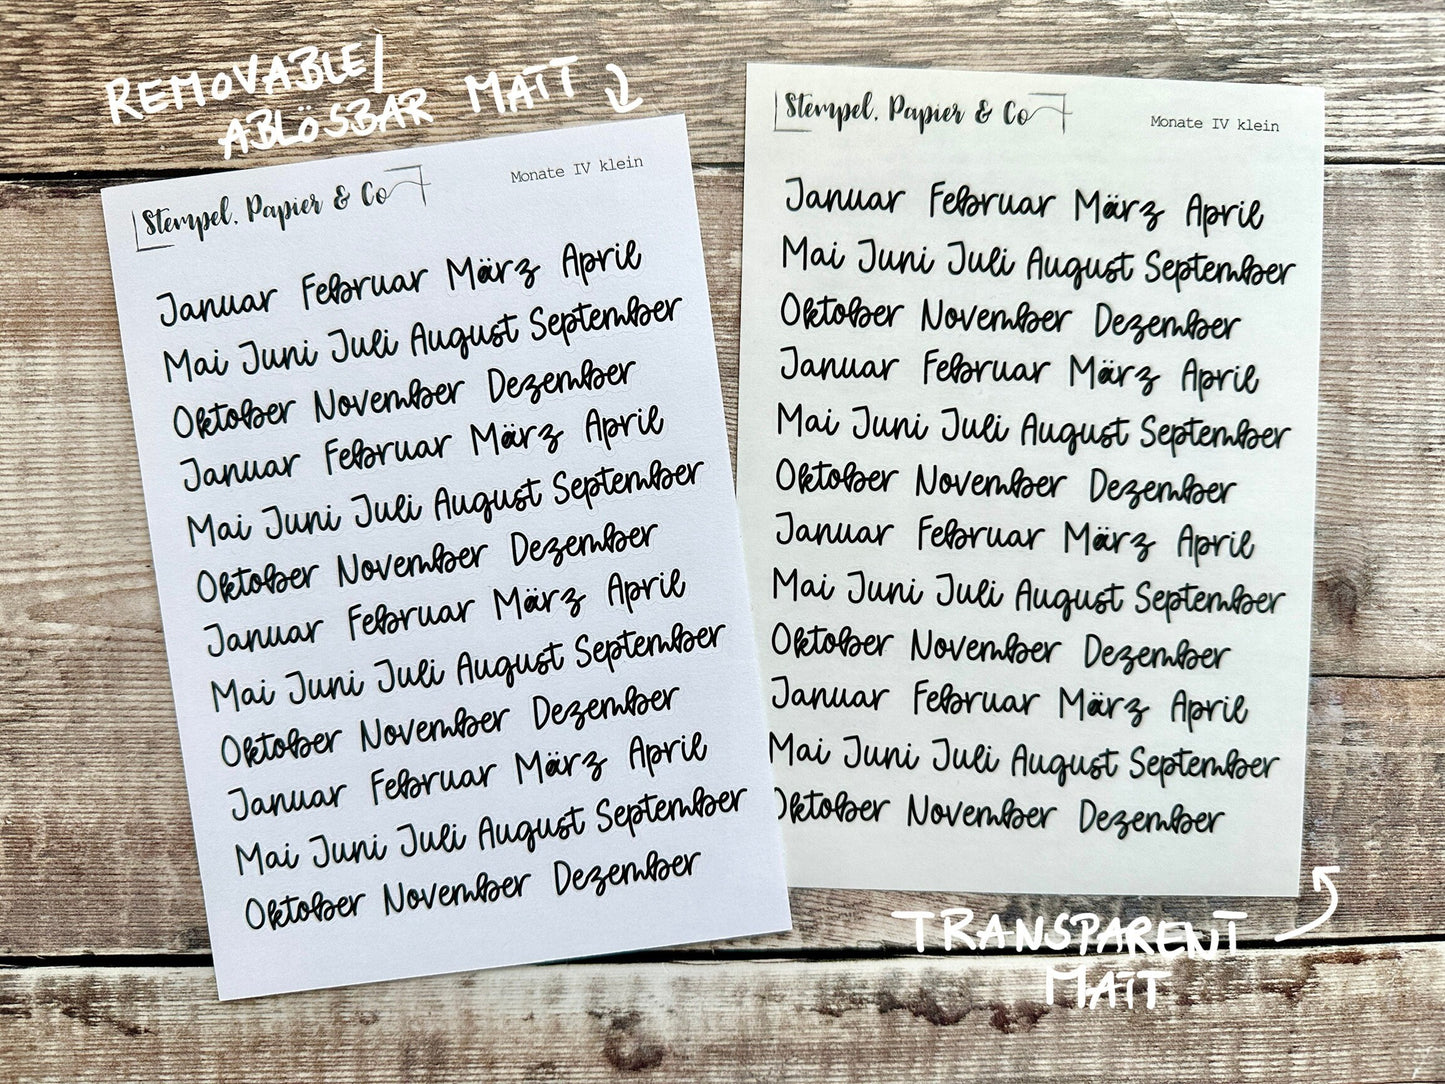 REMOVABLE/
ABLÖSBAR MATT
Stempel, Papier & Co
Monate IV klein
Januar Februar März April
Mai Juni Juli August September
Oktober November Dezember
Januar Februar März April
Mai Juni Juli August September
Oktober November Dezember
Januar Februar März April
Mai Juni Juli August September
Oktober November Dezember
Januar Februar März April
Mai Juni Juli August September
Oktober November Dezember
Stempel, Papier & Co
Monate IV klein
Januar Februar März April
Mai Juni Juli August September
Oktober November Dezember
Januar Februar März April
Mai Juni Juli August September
Oktober November Dezember
Januar Februar März April
Mai Juni Juli August September
Oktober November Dezember
Januar Februar März April
Mai Juni Juli August September
Oktober November Dezember
TRANSPARENT
MATT